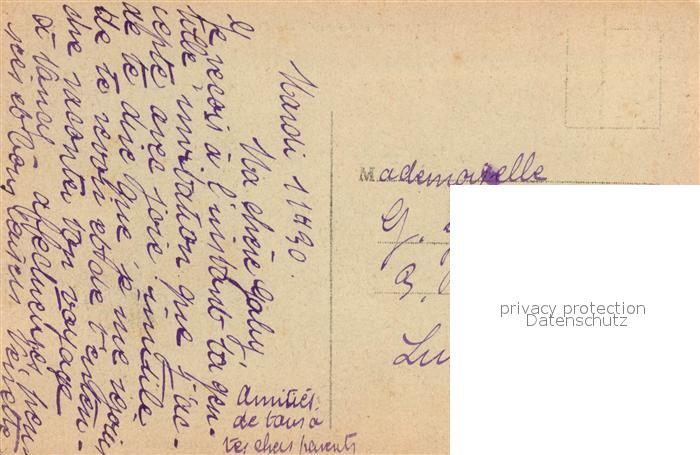 Mardi 11 H 30.
Ma chère Gaby,
Je reçois à l'instant ta gen-
tille invitation que j'ac-
cepte avec joie inutile
de te dire que je me réjouis
de te revoir et de t'enten-
dre raconter ton voyage
affectueux pour
toi et bons baisers
Amitiés
de tous à
tes chers parents
Mademoiselle
G.
3,
privacy protection
Datenschutz